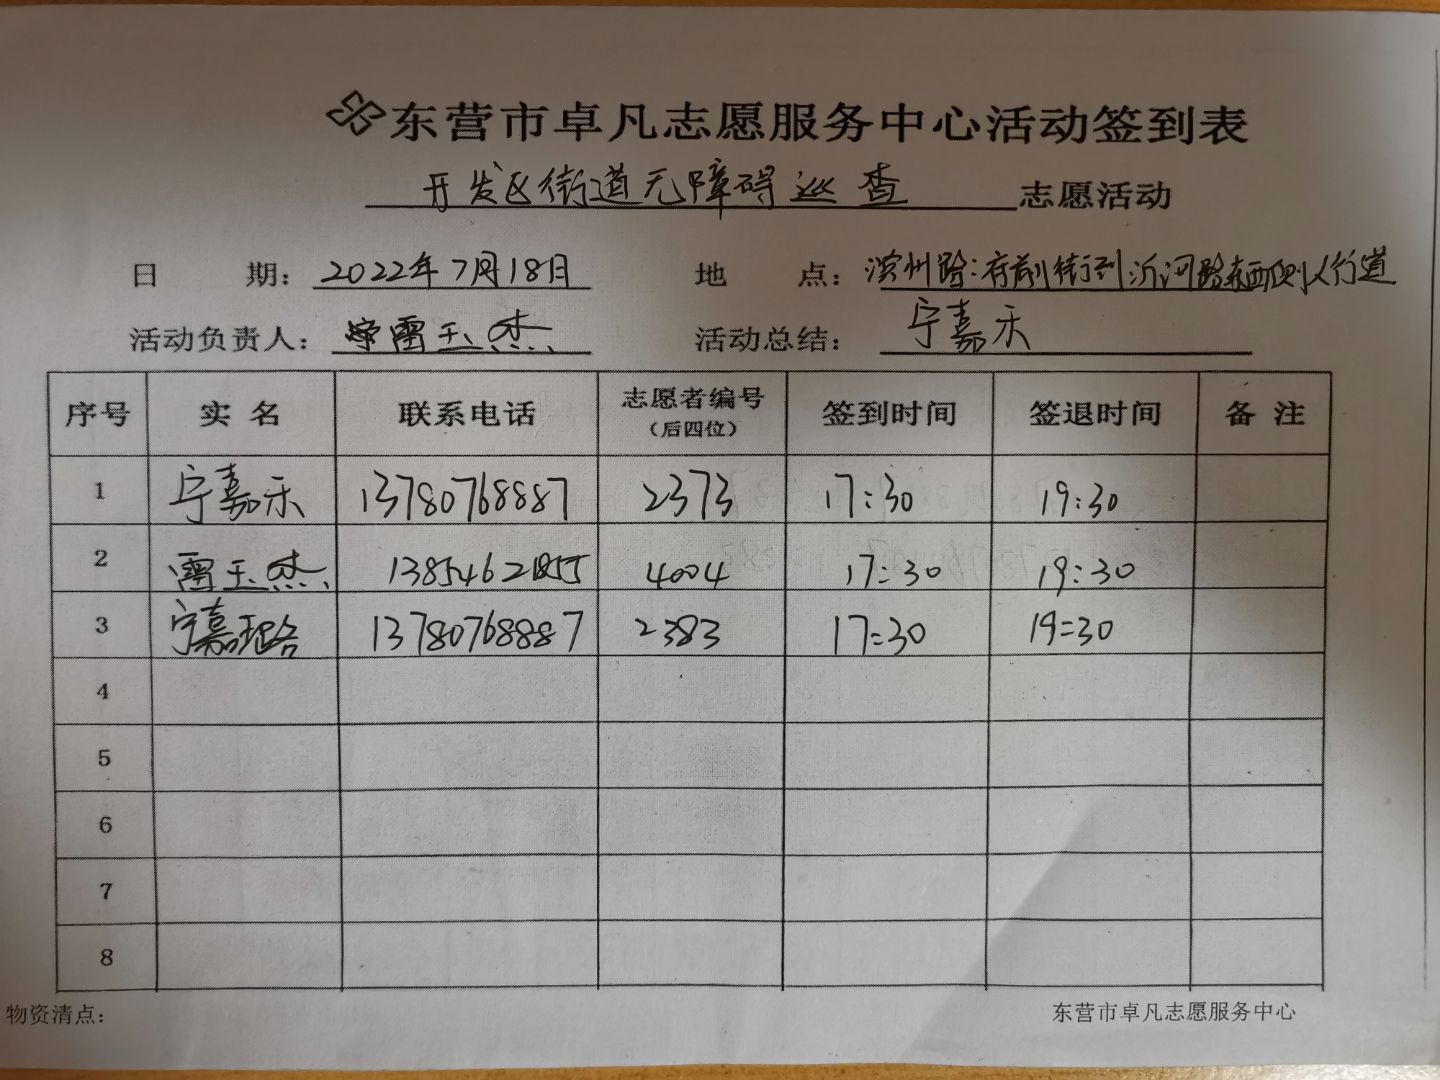 东营市卓凡志愿服务中心活动签到表
开发区街道无障碍巡查 志愿活动
日 期：2022年7月18日 地 点：滨州路：府前街到沂河路东西侧人行道
活动负责人：雷玉杰 活动总结：宁嘉禾
序号 实名 联系电话 志愿者编号（后四位） 签到时间 签退时间 备注
1 宁嘉禾 13780768887 2373 17:30 19:30
2 雷玉杰 13854621855 4004 17:30 19:30
3 宁嘉珞 13780768887 2383 17:30 19:30
4
5
6
7
8
物资清点： 东营市卓凡志愿服务中心